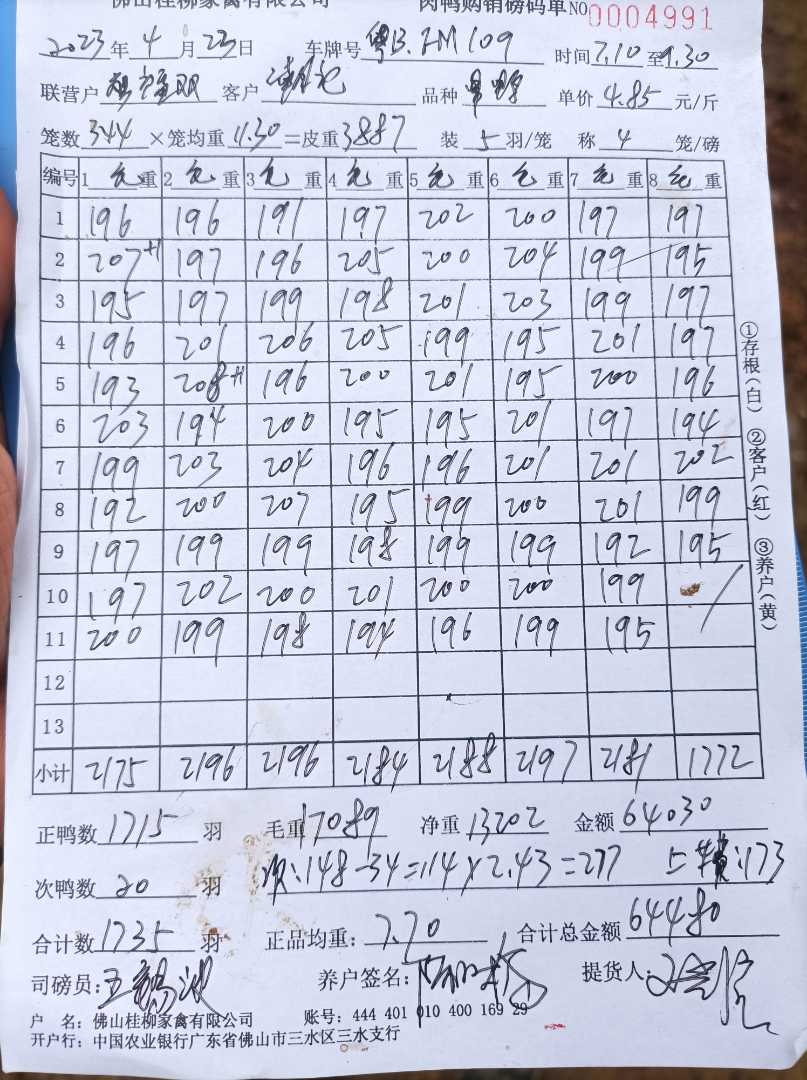 佛山桂柳家禽有限公司 肉鸭购销磅码单 NO 0004991
2023年4月23日 车牌号 粤B.ZM109 时间7.10至9.30
联营户 客户 品种 单价 4.85 元/斤
笼数 344 ×笼均重 11.30 =皮重 3887 装 5 羽/笼 称 4 笼/磅
编号 1 毛重 2 毛重 3 毛重 4 毛重 5 毛重 6 毛重 7 毛重 8 毛重
1 196 196 191 197 202 200 197 197
2 207+1 197 196 205 200 204 199 195
3 195 197 199 198 201 203 199 197
4 196 201 206 205 199 195 201 197
5 193 208+1 196 200 201 195 200 196
6 203 194 200 195 195 201 197 194
7 199 203 204 196 196 201 201 202
8 192 200 207 195 199 200 201 199
9 197 199 199 198 199 199 192 195
10 197 202 200 201 200 200 199 /
11 200 199 198 194 196 199 195
12
13
小计 2175 2196 2196 2184 2188 2197 2181 1772
正鸭数 1715 羽 毛重 17089 净重 13202 金额 64030
次鸭数 20 羽 次:148-34=114×2.43=277 上车费:173
合计数 1735 羽 正品均重: 7.70 合计总金额 64480
司磅员: 养户签名: 提货人:
户 名: 佛山桂柳家禽有限公司 账号: 444 401 010 400 169 29
开户行: 中国农业银行广东省佛山市三水区三水支行
①存根(白) ②客户(红) ③养户(黄)